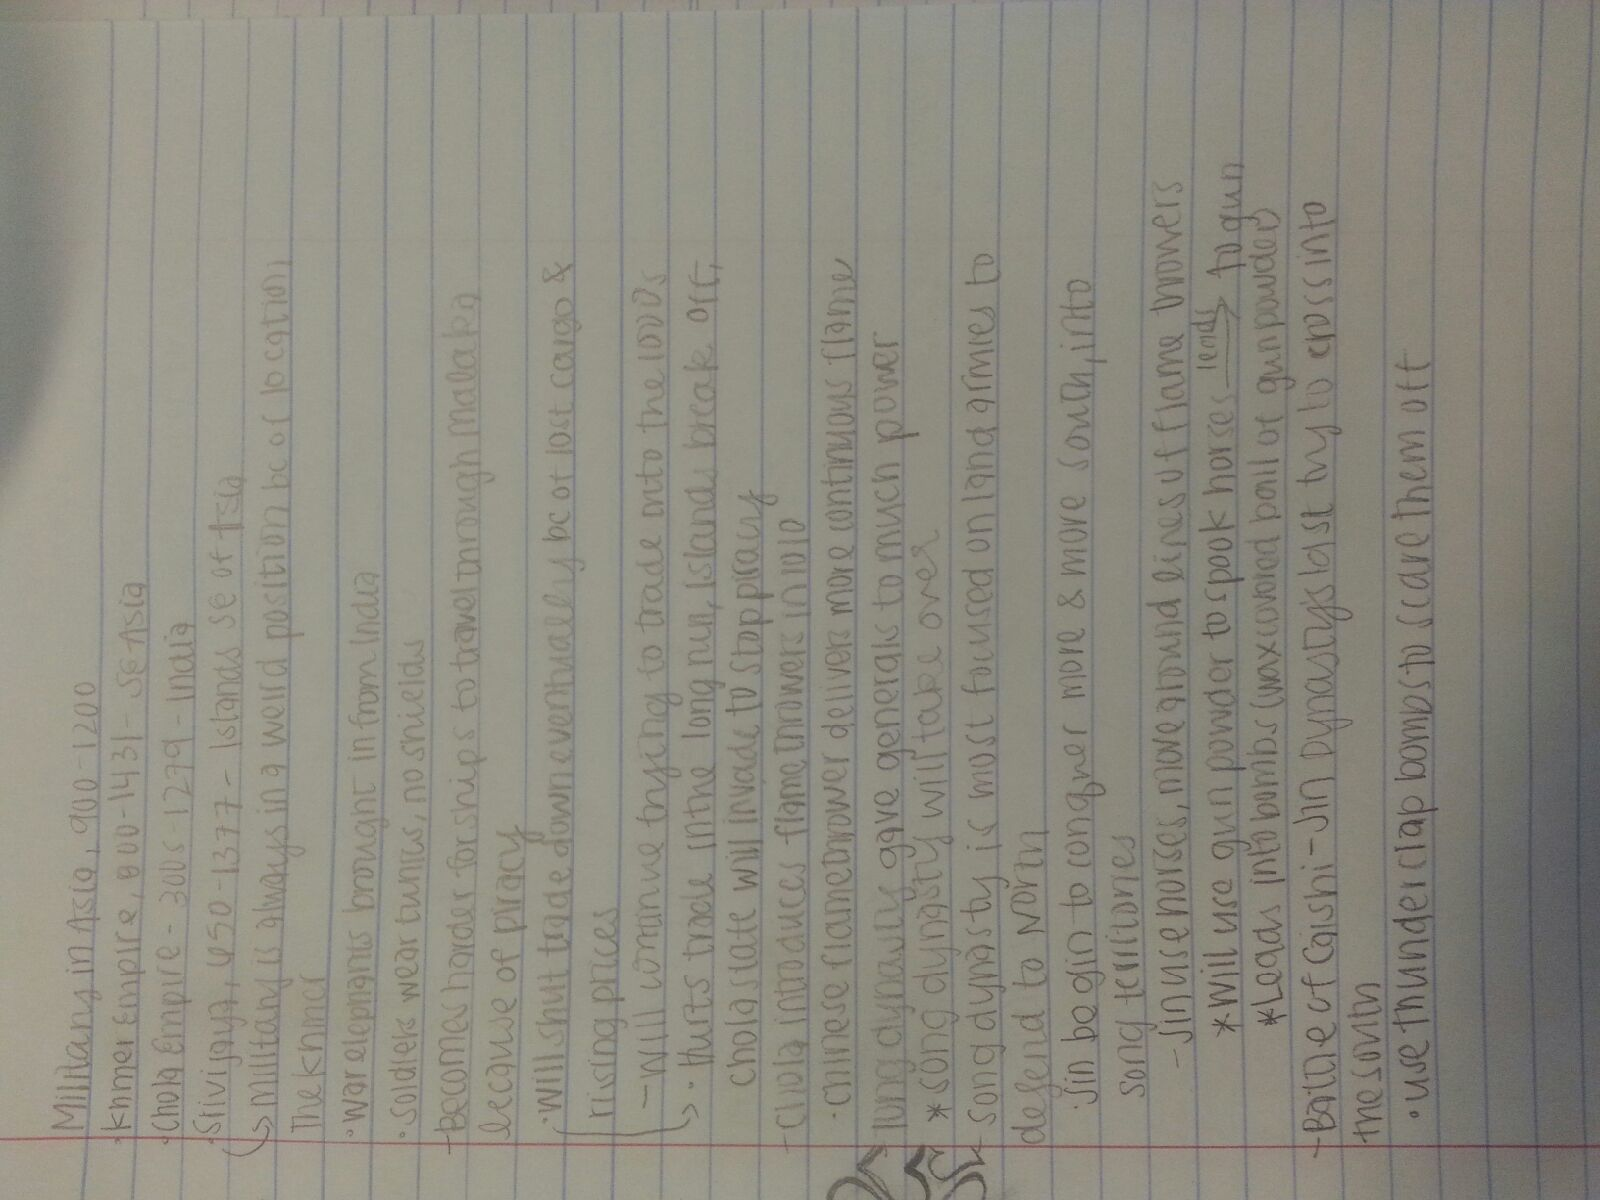 Military in Asia, 900-1200
· Khmer Empire, 800-1431 - SE Asia
· Chola Empire - 300s-1279 - India
· Srivijaya, 650-1377 - Islands SE of Asia
↳ Military is always in a weird position bc of location,
The Khmer
· War elephants brought in from India
· Soldiers wear tunics, no shields
- Becomes harder for ships to travel through Malaka
because of piracy
· Will shut trade down eventually bc of lost cargo &
rising prices
- Will continue trying to trade onto the 1000s
↳ · Hurts trade in the long run, islands break off,
chola state will invade to stop piracy
- Chola introduces flame throwers in 1010
· Chinese flamethrower delivers more continuous flame
dynasty gave generals to much power
* song dynasty will take over
- Song dynasty is most focused on land armies to
defend to North
· Jin begin to conquer more & more south, into
song territories
- Jin use horses, move around lines of flame throwers
* Will use gun powder to spook horses leads → to gun
* Leads into bombs (wax covered ball of gunpowder)
- Battle of Caishi - Jin Dynastys last try to cross into
the south
· use thunderclap bombs to scare them off